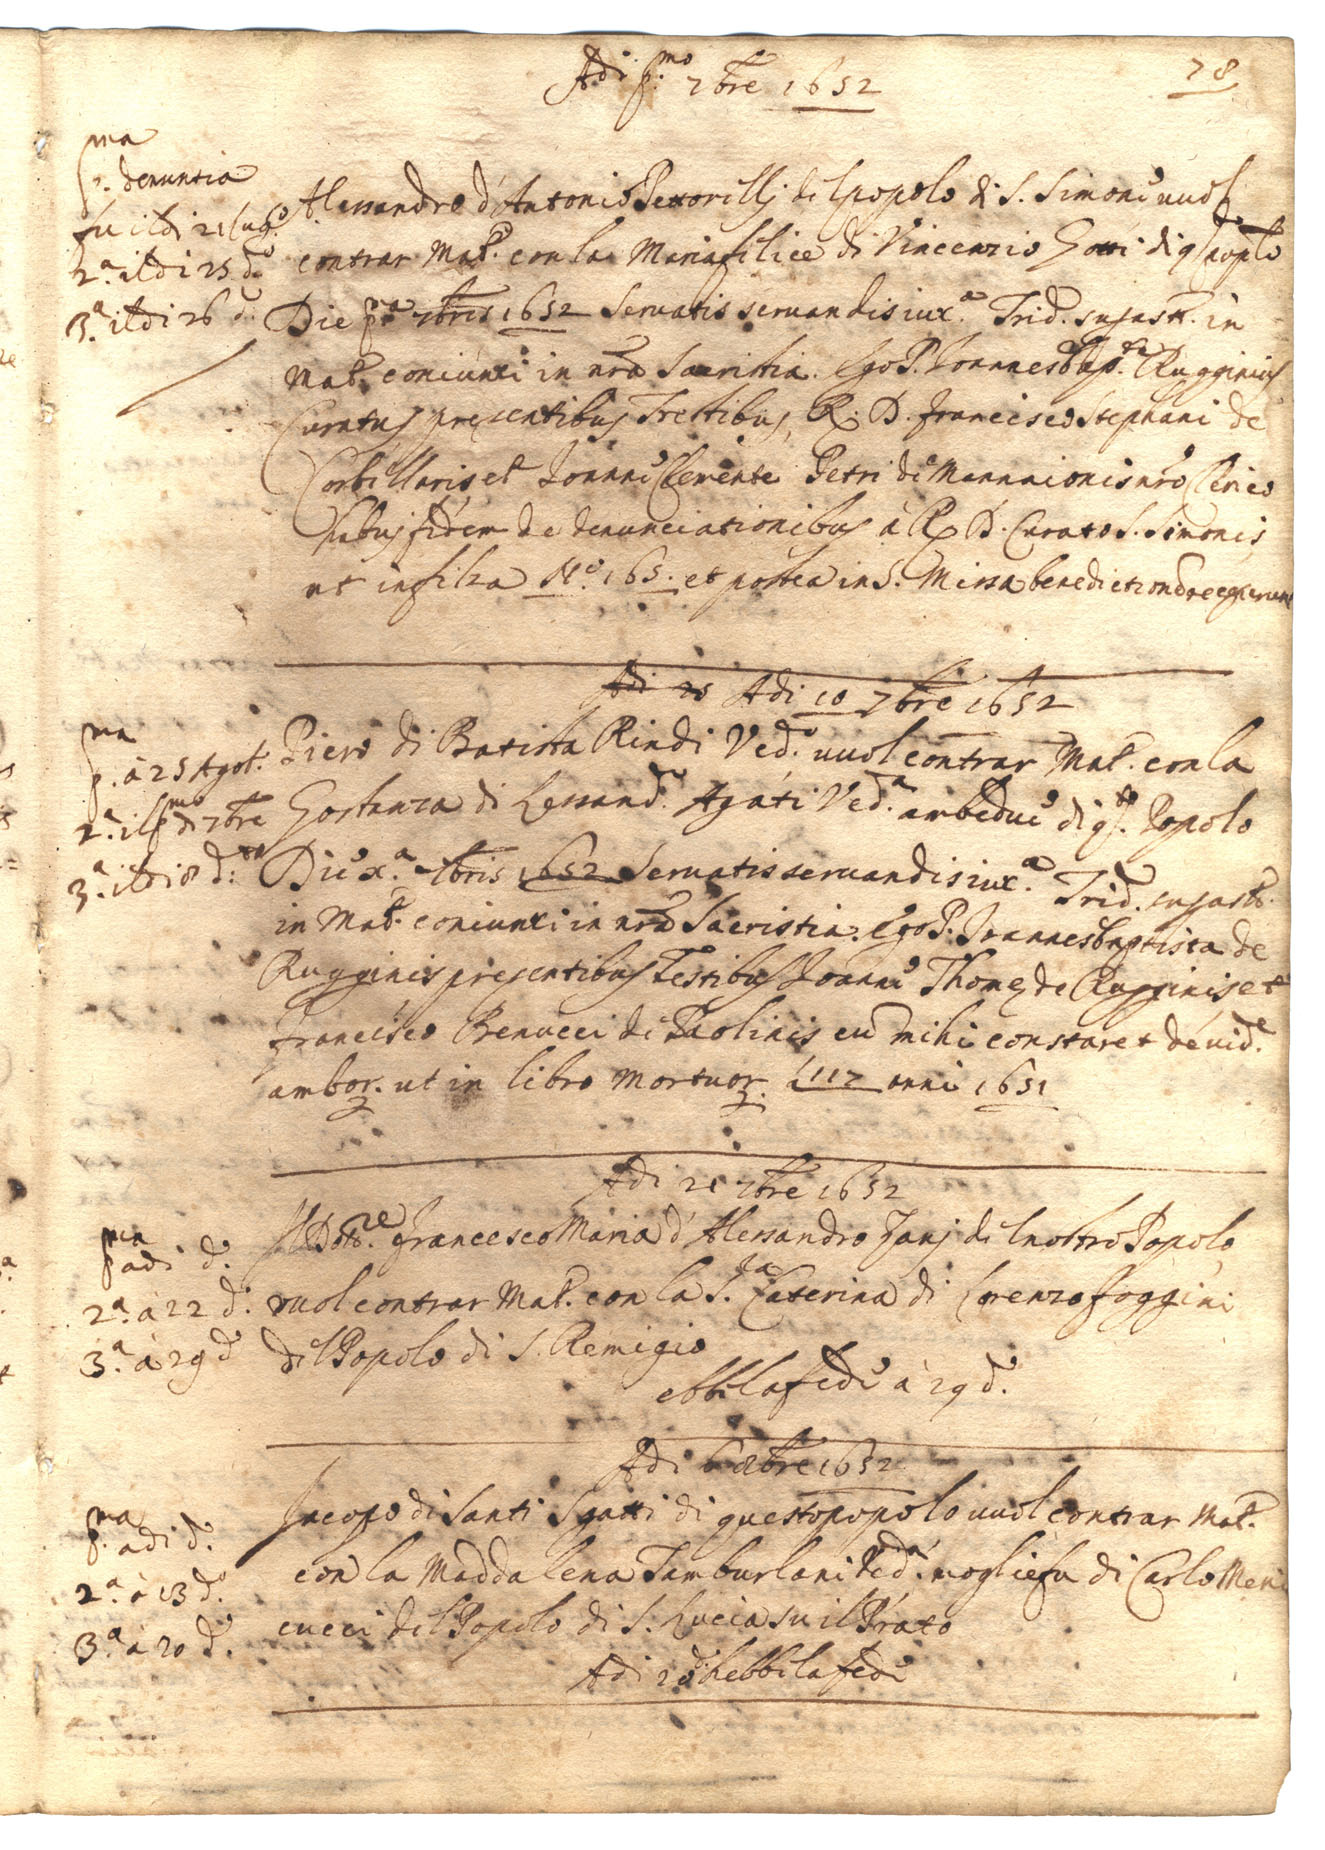 Adi p.mo 7bre 1652
78
p.ma denuntia
fu il di 21 lug.o
2.a il di 25 d.o
3.a il di 26 d.o
Alessandro d'Antonio del popolo di S. Simone vuol
contrar Mat. con la Mariafilice di Vincenzio Gotti di q. popolo
Die p.a 7bris 1652 Servatis servandis iux.a Trid. in
Mat. coniunxi in nra Sacristia. Ego P. Joannes Bap.ta Rugginius
Curatus presentibus Testibus, R. D. Francisco Stephani de
Corbillaris et Joanne Clemente Petri de Mannaionis nro Clerico
habus fidem de denunciationibus à R. D. Curato S. Simonis
ut in filza N.o 165. et postea in S. Missa benedictione
Adi 28 Adi 10 7bre 1652
p.ma à 25 Agos.
2.a il p.mo di 7bre
3.a il di 8 d.to
Piero di Batista Rindi Ved.o vuol contrar Mat. con la
Gostanza di Lessand.o Agati Ved.a ambedue di q.to Popolo
Die x.a 7bris 1652 Servatis servandis iux.a Trid.
in Mat. coniunxi in nra Sacristia. Ego P. Joannes baptista de
Rugginis presentibus Testibus Joanne Thome de Rugginis et
Francisco Benucci de Paolinis cu mihi constaret de vid.e
ambor. ut in libro Mortuor. 117 anni 1651
Adi 21 7bre 1652
p.ma adi d.o
2.a à 22 d.o
3.a à 29 d.o
Il Dot.re Francesco Maria d'Alessandro Zanj del nostro Popolo
vuol contrar Mat. con la S.ra Caterina di Lorenzo Foggini
del Popolo di S. Remigio
ebbi la fede à 29 d.o
Adi 6 8bre 1652
p.ma adi d.o
2.a à 13 d.o
3.a à 20 d.o
Jacopo di Santi Sgatti di questo popolo vuol contrar Mat.
con la Maddalena Tamburlani Ved.a moglie fu di Carlo Meni
cucci del Popolo di S. Lucia su il Prato
Adi 20 d. hebbi la fede